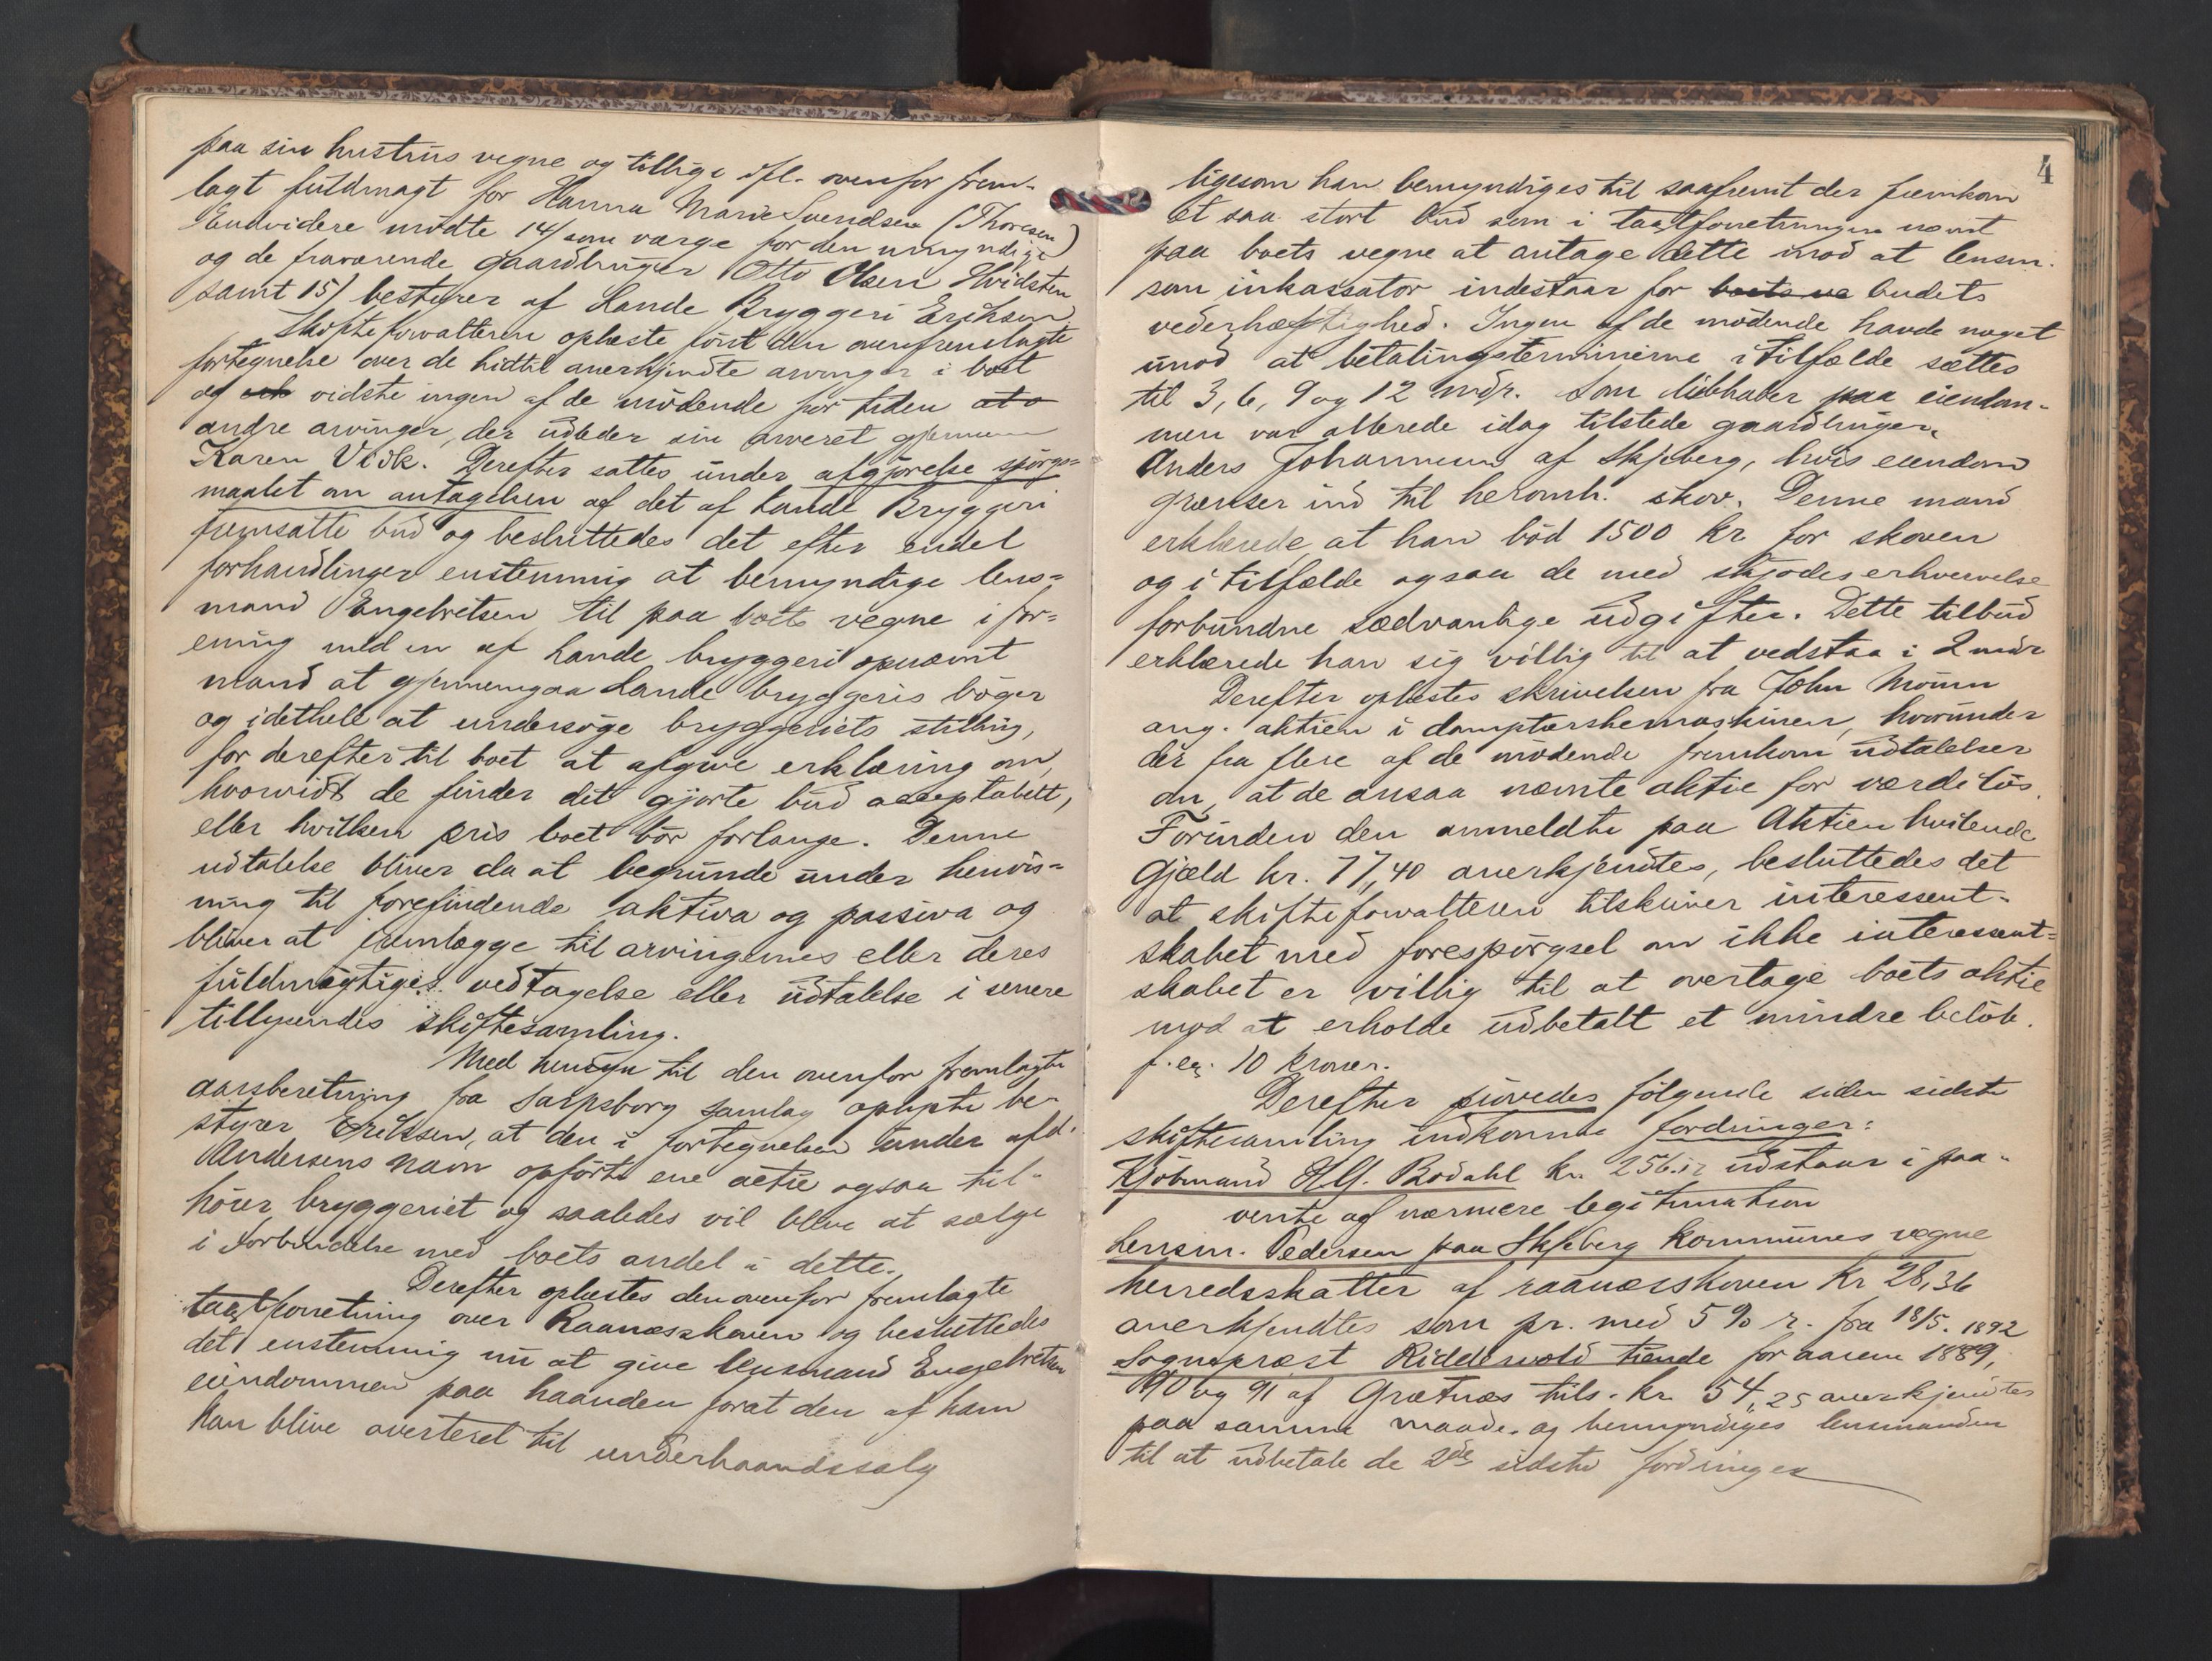 paa sin hustrus vegne og tillige ifl. ovenfor frem-
lagt fuldmagt for Hanna Marie Svendsen (Thoresen)
Endvidere mødte 14/ som værge for den umyndige
og de fraværende gaardbruger Otto Olsen Hvidsten
samt 15/ bestyrer af Lande Bryggeri Eriksen
Skifteforvalteren oplæste först den ovenfremlagte
fortegnelse over de hidtil anerkjendte arvinger i boet
og vidste ingen af de mödende for tiden
andre arvinger, der udleder sin arveret gjennem
Karen Vidk. Derefter sattes under afgjörelse spörgs=
maalet om antagelsen af det af Lande Bryggeri
fremsatte bud og besluttedes det efter endel
forhandlinger enstemmig at bemyndige lens=
mand Engebretsen til paa boets vegne i for=
ening med en af Lande bryggeri opnævnt
mand at gjennemgaa Lande bryggeris böger
og idethele at undersøge bryggeriets stilling,
for derefter til boet at afgive erklæring om,
hvorvidt de finder det gjorte bud acceptabelt,
eller hvilken pris boet bör forlange. Denne
udtalelse bliver da at begrunde under henvis=
ning til forefindende aktiva og passiva og
bliver at fremlægge til arvingernes eller deres
fuldmægtiges vedtagelse eller udtalelse i senere
tillysendes skiftesamling.
Med hensyn til den ovenfor fremlagte
aarsberetning fra Sarpsborg samlag oplyste be-
styrer Erikssen, at den i fortegnelsen under afd.
Andersens navn opförte ene actie ogsaa til-
hörer bryggeriet og saaledes vil blive at sælge
i Forbindelse med boets andel i dette.
Derefter oplæstes den ovenfor fremlagte
taxtforretning over Raanæsskoven og besluttedes
det enstemmig nu at give lensmand Engebretsen
eiendommen paa haanden forat den af ham
kan blive averteret til underhaandssalg
4
ligesom han bemyndiges til saafremt der fremkom
et saa stort bud som i taxtforretningen nævnt
paa boets vegne at antage dette mod at lensm.
som inkassator indestaar for boets ve budets
vederhæftighed. Ingen af de mödende havde noget
imod at betalingsterminerne i tilfælde sættes
til 3, 6, 9 og 12 mdr. Som liebhaber paa eiendom-
men var allerede idag tilstede gaardbruger
Anders Johannesen af Skjeberg, hvis eiendom
grænser ind til heromh. skov. Denne mand
erklærede at han böd 1500 kr for skoven
og i tilfælde ogsaa de med skjødes erhvervelse
forbundne sædvanlige udgifter. Dette tilbud
erklærede han sig villig til at vedstaa i 2 mdr
Derefter oplæstes skrivelsen fra John Moum
ang. aktien i damptærskemaskinen, hvorunder
der fra flere af de mödende fremkom udtalelser
om, at de ansaa nævnte aktie for værdilös.
Forinden den anmeldte paa Aktien hvilende
Gjæld kr. 77,40 anerkjendtes, besluttedes det
at skifteforvalteren tilskriver interessent-
skabet med forespörgsel om ikke interessent=
skabet er villig til at overtage boets aktie
mod at erholde udbetalt et mindre belöb.
f. ex. 10 kroner.
Derefter prövedes fölgende siden sidste
skiftesamling indkomne fordringer:
Kjöbmand H. Bodahl kr. 256.12 udstaar i paa-
vente af nærmere legitimation
Lensm. Pedersen paa Skjeberg kommunes vegne
herredsskatter af raanæsskoven kr 28,36
anerkjendtes som pr. med 5% r. fra 18/5. 1892
Sognepræst Riddervold tiende for aarene 1889,
90 og 91 af Grætnæs tils. kr. 54,25 anerkjendtes
paa samme maade, og bemyndiges lensmanden
til at udbetale de 2de sidste fordringer